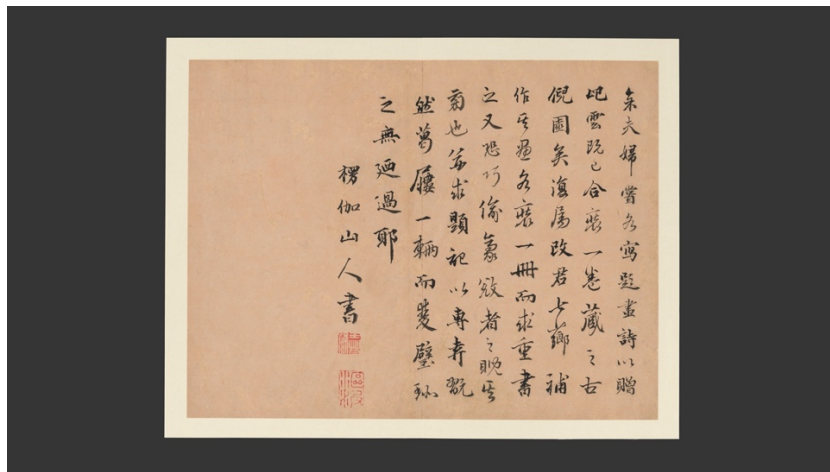 余夫婦嘗各寫題畫詩以贈
屺雲既已合裝一卷藏之古
倪園矣復屬改君七薌補
作其畫各裝一冊而求重書
之又恐巧偷豪敓者之覬其
旁也并求顯記以專弆翫
然葛屨一輛而雙璧珎
之無迺過耶
楞伽山人書